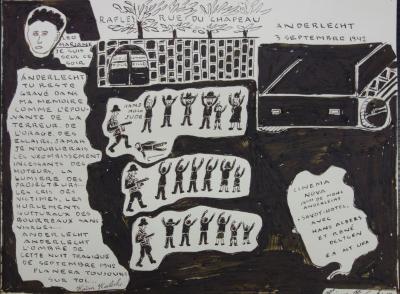 RAFLE RUE DU CHAPEAU
ANDERLECHT
3 SEPTEMBRE 1942
LEO
MARJANE
JE SUIS
SEUL CE
SOIR
ANDERLECHT
TU RESTE
GRAVÉ DANS
MA MEMOIRE
COMME L'EPOU-
VANTE DE LA
TERREUR DE
L'ORAGE DES
ECLAIRS, JAMAIS
JE N'OUBLIERAI
LES VROMBISSEMENT
INCESSANTS DES
MOTEURS, LA
LUMIERE DES
PROJECTEURS
LES CRIS DES
VICTIMES, LES
HURLEMENTS
GUTTURAUX DES
BOURREAUX SANS
VISAGES
ANDERLECHT
ANDERLECHT
L'OMBRE DE
CETTE NUIT TRAGIQUE
DE SEPTEMBRE 1942
PLANERA TOUJOURS
SUR TOI
HANS
HOCH
JUDE
CINEMA
NOVA
DE MONS
ANDERLECHT
SAVOY-HOTEL
AVEC
HANS ALBERS
ET RENÉ
DELTGEN